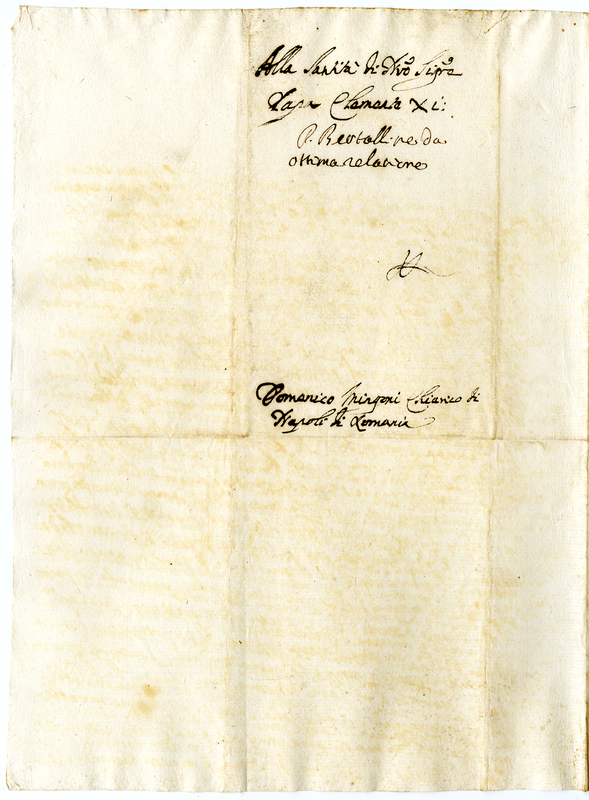 Alla Santità di Nrõ Sigrẽ
Papa Clemente XI:
P. Bertolli ne da
ottima relatione
Domenico Mingoni Chierico di
Napoli di Romania